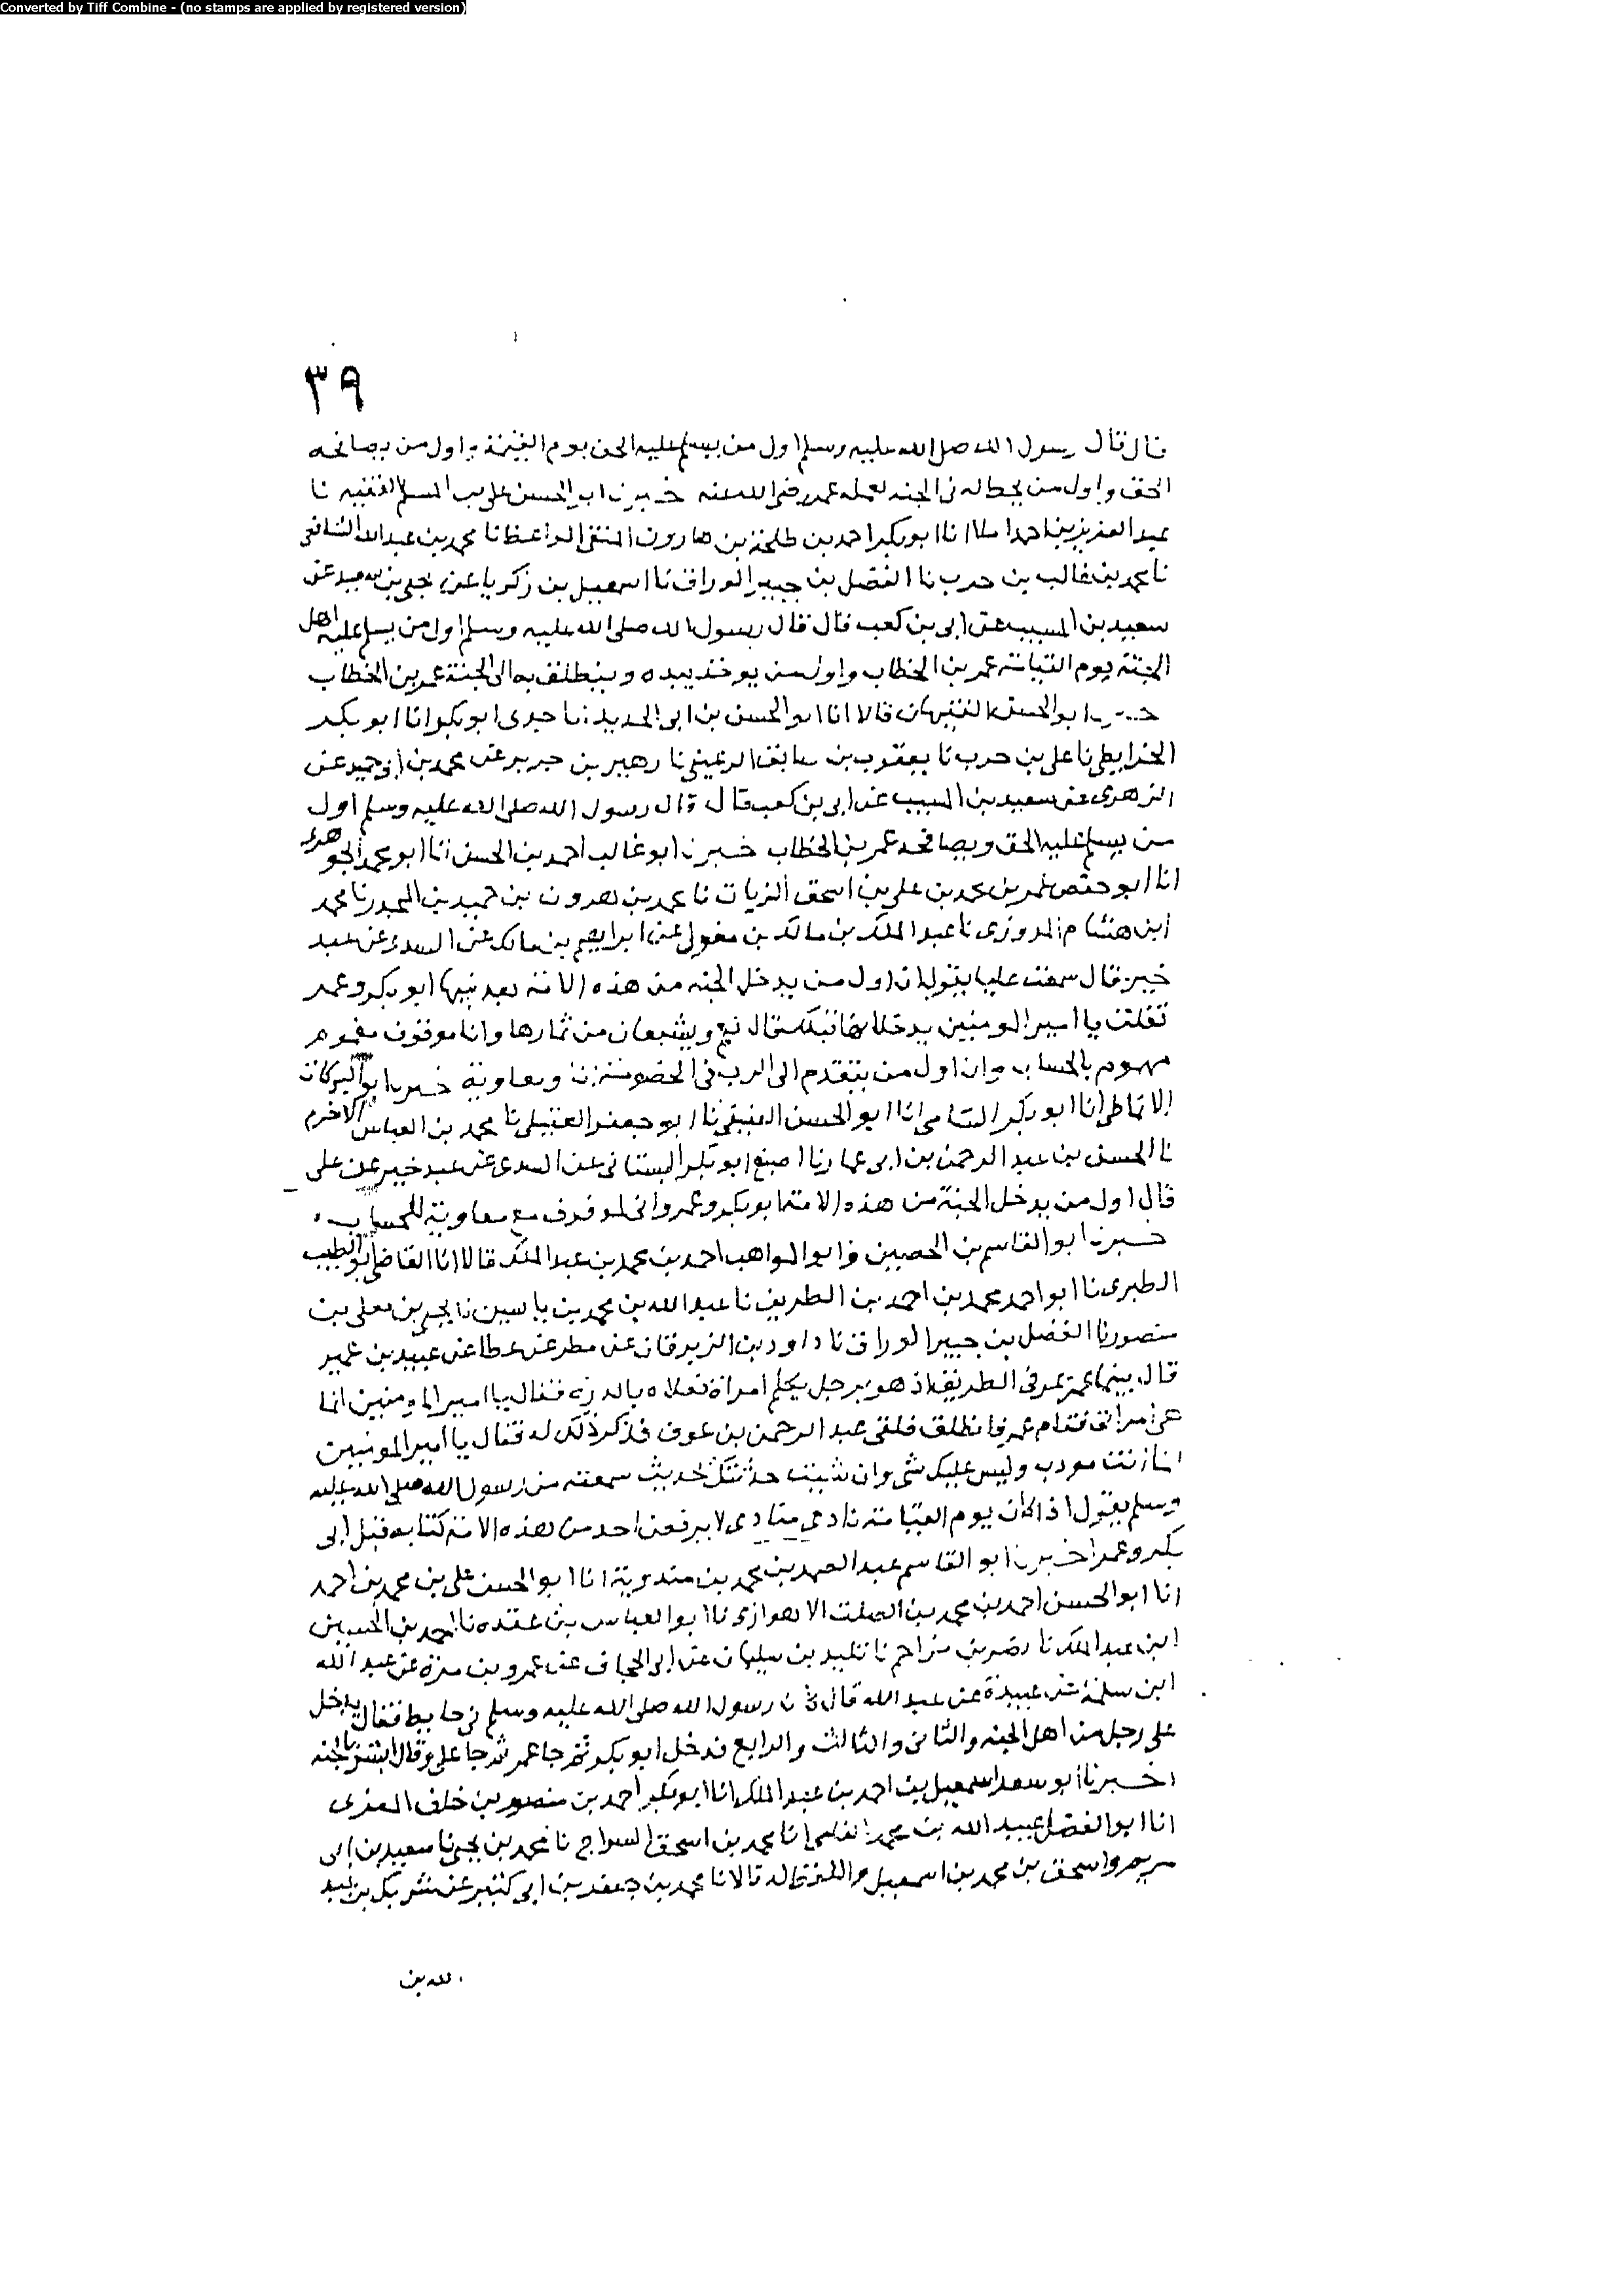 Converted by Tiff Combine - (no stamps are applied by registered version)
٣٩
قال قال رسول الله صلى الله عليه وسلم اول من يسلم عليه الحق يوم القيمة واول من يصافحه
الحق واول من يعطا له في الجنه لعمله عمر رضى الله عنه خبرنا ابو الحسن على بن المسلم الفقيه نا
عبد العزيز بن احمد املاا انا ابو بكر احمد بن طلحة بن هارون المنقى الواعظ انا محمد بن عبد الله الشافعى
نا محمد بن غالب بن حرب نا الفضل بن جبير الوراق نا اسمعيل بن زكريا عن يحيى بن سعيد عن
سعيد بن المسيب عن ابى بن كعب قال قال رسول الله صلى الله عليه وسلم اول من يسلم عليه اهل
الجنة يوم القيامة عمر بن الخطاب واول من يوخذ بيده وينطلق به الى الجنة عمر بن الخطاب
خبرنا ابو الحسن الفقيهان قالا انا ابو الحسن بن ابى الحديد انا جدى ابو بكر انا ابو بكر
الخرايطى نا على بن حرب نا يعقوب بن عن محمد بن ابى حميد عن
الزهرى عن سعيد بن المسيب عن ابى بن كعب قال قال رسول الله صلى الله عليه وسلم اول
من يسلم عليه الحق ويصافحه عمر بن الخطاب خبرنا ابو غالب احمد بن الحسن انا ابو محمد الجوهرى
انا ابو حفص عمر بن محمد بن على بن اسحق الزيات نا محمد بن هرون بن حميد بن المجدر نا محمد
ابن هشام المروزى نا عبد الملك بن مالك بن مغول عن ابراهيم بن مالك عن السدى عن عبد
خير قال سمعت عليا يقول ان اول من يدخل الجنه من هذه الامة بعد نبيها ابو بكر وعمر
فقلت يا امير المومنين يدخلانها قبلك قال نعم ويشبعان من ثمارها وانا موقوف مغموم
مهموم بالحساب وان اول من يتقدم الى الرب فى الخصومة انا ومعاوية خبرنا ابو البركات
الانماطى انا ابو بكر الشامى انا ابو الحسن العتيقى نا ابو جعفر العقيلى نا محمد بن العباس الاخرم
نا الحسن بن عبد الرحمن بن ابى عمار نا اصبغ ابو بكر عن السدى عن عبد خير عن على
قال اول من يدخل الجنة من هذه الامة ابو بكر وعمر وانى لموقوف مع معاوية للحساب
خبرنا ابو القاسم بن الحصين وابو المواهب احمد بن محمد بن عبد الملك قالا انا القاضى ابو الطيب
الطبرى نا ابو احمد محمد بن احمد بن الطريف نا عبد الله بن محمد بن ياسين نا يحيى بن معلى بن
منصور نا الفضل بن جبير الوراق نا داود بن الزبرقان عن مطر عن عطا عن عبيد بن عمير
قال بينما عمر يمر فى الطريق اذ هو برجل يكلم امراة فعلاه بالدرة فقال يا امير المومنين انما
هى امراتى فقام عمر فانطلق فلقى عبد الرحمن بن عوف فذكر ذلك له فقال يا امير المومنين
انما انت مودب وليس عليك شى وان شيت حدثتك بحديث سمعته من رسول الله صلى الله عليه
وسلم يقول اذا كان يوم القيامة نادى منادى لا يرفعن احد من هذه الامة كتابه قبل ابى
بكر وعمر اخبرنا ابو القاسم عبد الصمد بن محمد بن مندوية انا ابو الحسن على بن محمد بن احمد
انا ابو الحسن احمد بن محمد بن الصلت الاهوازى نا ابو العباس بن عقده نا احمد بن الحسين
ابن عبد الملك نا نصر بن مزاحم نا تليد بن سليمان عن ابى الجحاف عن عمرو بن مرة عن عبد الله
ابن سلمة عن عبيدة عن عبد الله قال كان رسول الله صلى الله عليه وسلم فى حايط فقال يدخل
على رجل من اهل الجنه والثانى والثالث والرابع فدخل ابو بكر ثم جا عمر ثم جا على وقال ابشر بالجنه
اخبرنا ابو سعد اسمعيل بن احمد بن عبد الملك انا ابو بكر احمد بن منصور بن خلف المغربى
انا ابو الفضل عبيد الله بن محمد الفامى انا محمد بن اسحق السراج نا محمد بن يحيى نا سعيد بن ابى
مريم واسحق بن محمد بن اسمعيل قالا نا محمد بن جعفر بن ابى كثير عن شريك بن
لله بن